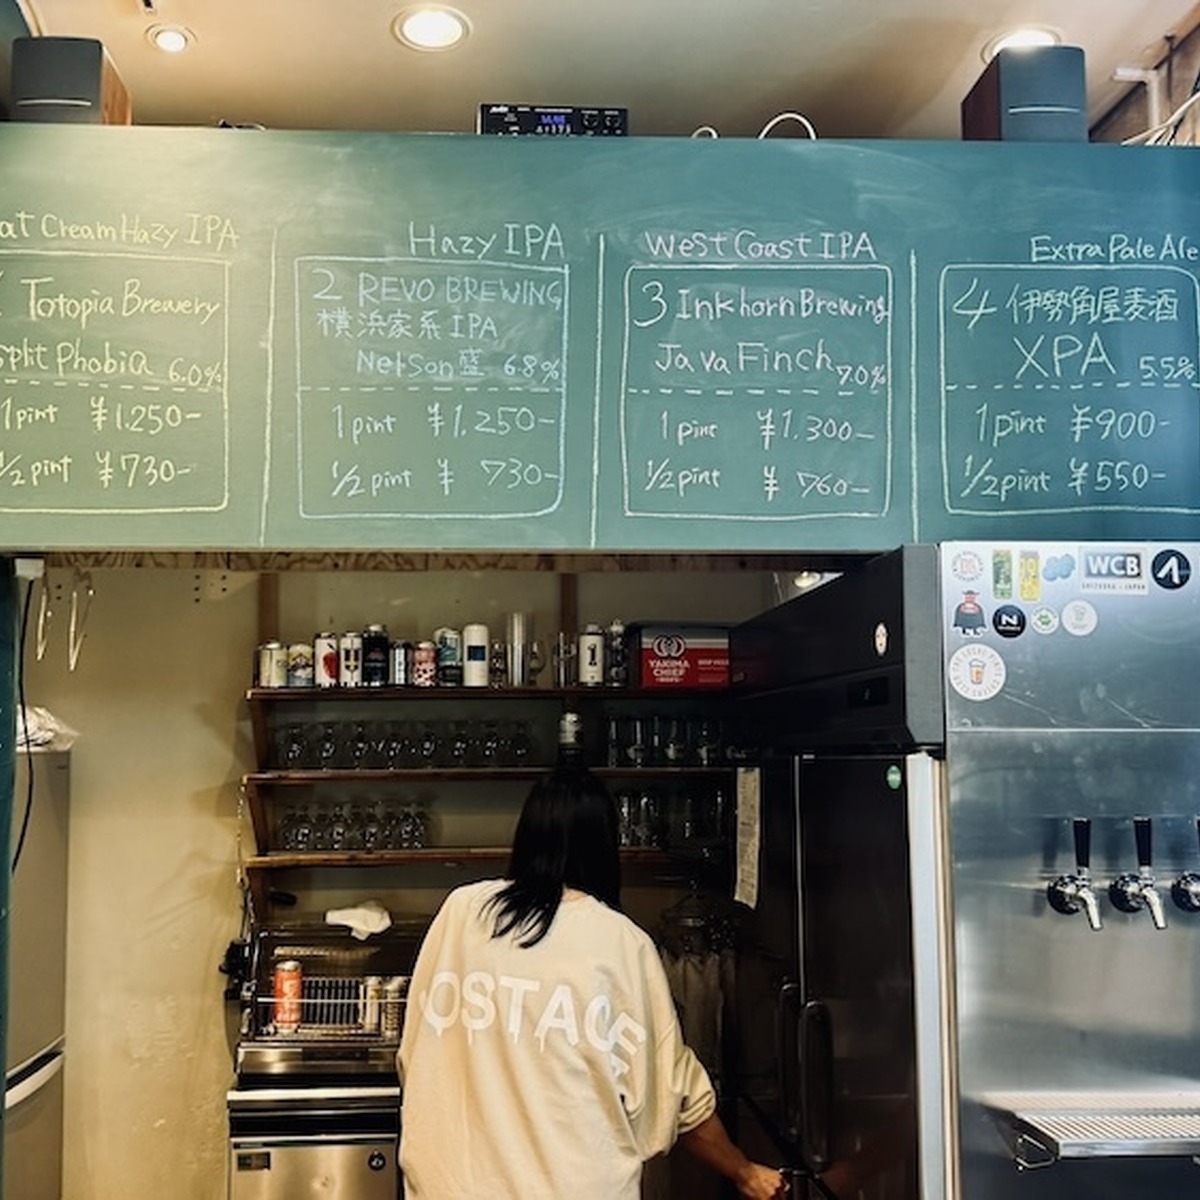 at Cream Hazy IPA
Totopia Brewery
Split Phobia 6.0%
1 pint ¥1.250-
1/2 pint ¥730-
Hazy IPA
2 REVO BREWING
横浜家系IPA
Nelson盛 6.8%
1 pint ¥1.250-
1/2 pint ¥ 730-
West Coast IPA
3 Inkhorn Brewing
Java Finch 7.0%
1 pint ¥1.300-
1/2 pint ¥ 760-
Extra Pale Ale
4 伊勢角屋麦酒
XPA 5.5%
1 pint ¥900-
1/2 pint ¥550-
WCB
SHIZUOKA - JAPAN
N
YAKIMA
CHIEF
HOPS
OSTAGE